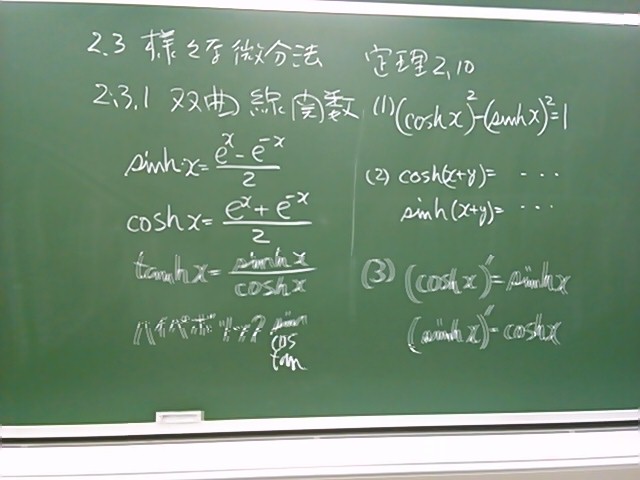 2.3 様々な微分法
2.3.1 双曲線関数
sinh x = (e^x - e^-x)/2
cosh x = (e^x + e^-x)/2
tanh x = sinh x/cosh x
sin
cos
tan
定理2.10
(1) (cosh x)^2 - (sinh x)^2 = 1
(2) cosh(x+y) = ...
sinh(x+y) = ...
(3) (cosh x)' = sinh x
(sinh x)' = cosh x